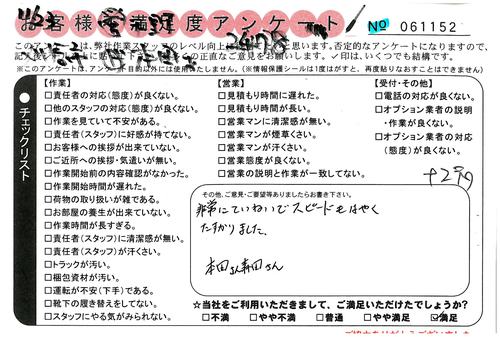 お客様満足度アンケート
No 061152
このアンケートは、弊社作業スタッフのレベル向上に
思います。否定的なアンケートになりますので、
の正直なご意見をお願いします。✓印は、いくつでも結構です。
※このアンケートは、アンケート目的以外には使用いたしません。(※情報保護シールは1度はがすと、再度貼りなおすことはできません)
チェックリスト
【作業】
□責任者の対応(態度)が良くない。
□他のスタッフの対応(態度)が良くない。
□作業を見ていて不安がある。
□責任者(スタッフ)に好感が持てない。
□お客様への挨拶が出来ていない。
□ご近所への挨拶・気遣いが無い。
□作業開始前の内容確認がなかった。
□作業開始時間が遅れた。
□荷物の取り扱いが雑である。
□お部屋の養生が出来ていない。
□作業時間が長すぎる。
□責任者(スタッフ)に清潔感が無い。
□責任者(スタッフ)が汗くさい。
□トラックが汚い。
□梱包資材が汚い。
□運転が不安(下手)である。
□靴下の履き替えをしてない。
□スタッフにやる気がみられない。
【営業】
□見積もり時間に遅れた。
□見積もり時間が長い。
□営業マンに清潔感が無い。
□営業マンが煙草くさい。
□営業マンが汗くさい。
□営業態度が良くない。
□営業の説明と作業が一致してない。
【受付・その他】
□電話の対応が良くない。
□オプション業者の説明
・作業が良くない。
□オプション業者の対応
(態度)が良くない。
その他、ご意見・ご要望等ありましたらお書き下さい。
非常にていねいでスピードもはやく
たすかりました。
本田さん寿田さん
☆当社をご利用いただきまして、ご満足いただけたでしょうか?
□不満 □やや不満 □普通 □やや満足 ☑満足